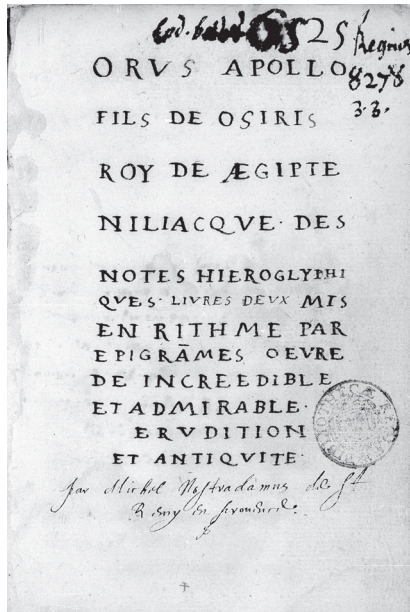 525 Regius
8278
3.3.
ORVS APOLLO
FILS DE OSIRIS
ROY DE ÆGIPTE
NILIACQVE· DES
NOTES HIEROGLYPHI
QVES· LIVRES DEVX MIS
EN RITHME PAR
EPIGRĀMES OEVRE
DE INCREEDIBLE
ET ADMIRABLE·
ERVDITION
ET ANTIQVITE·
par Michel Nostradamus de St
Remy en